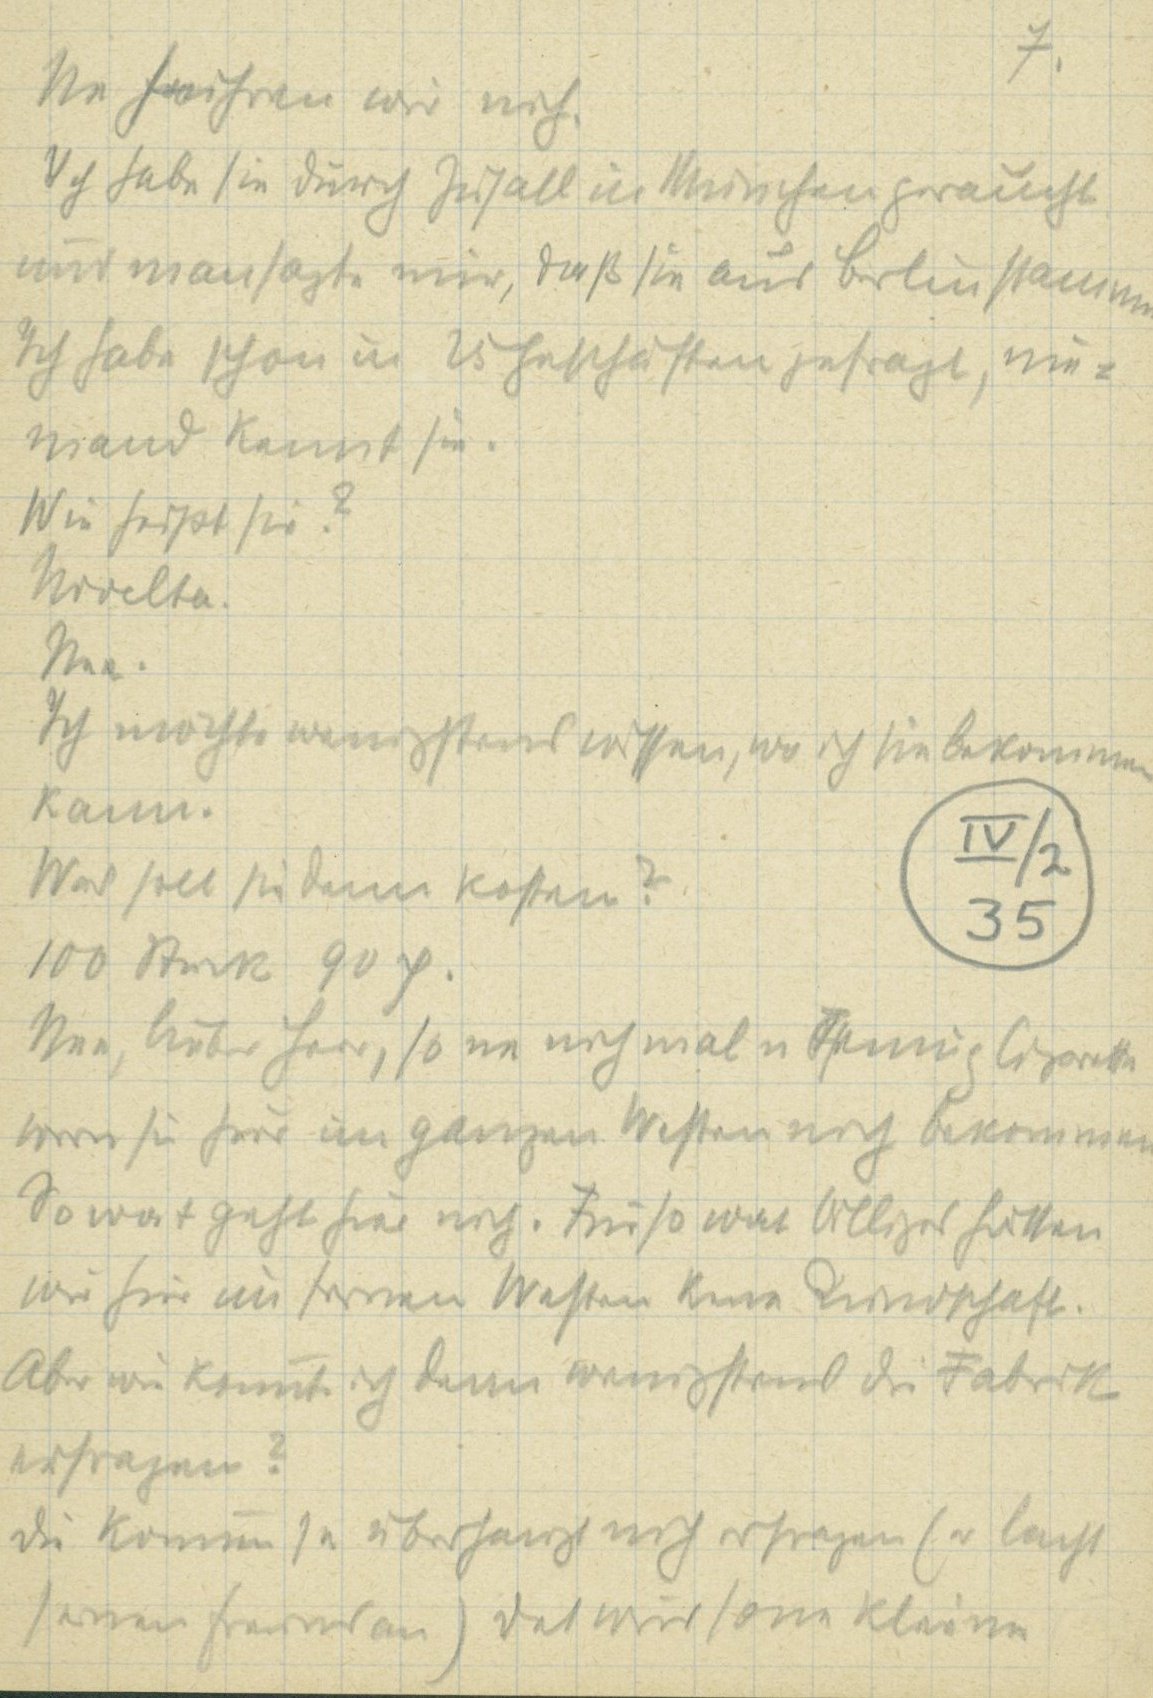 7.
Ne führen wir nich.
Ich habe sie durch Zufall in München geraucht
und man sagte mir, daß sie aus Berlin stamme
Ich habe schon in 25 Geschäften gefragt, nie=
mand kennt sie.
Wie heißt sie?
Novelta.
Nee.
Ich möchte wenigstens wissen, wo ich sie bekommen
kann.
IV/2
35
Was soll sie denn kosten?
100 Stück 90 
Nee, lieber Herr, so ne nich mal n Pfennig Cigarette
wern sie hier im ganzen Westen nich bekommen
So wat geht hier nich. Für so wat billiges hätten
wir hier im fernen Westen kene Kundschaft.
Aber wie könnte ich denn wenigstens die Fabrik
erfragen?
Die könn se überhaupt nich erfragen (er lacht
seinen Freund an) det wird sone kleine